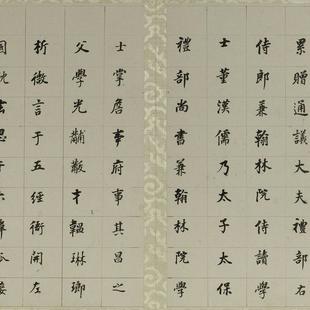 累贈通議大夫禮部右
侍郎兼翰林院侍讀學
士董漢儒乃太子太保
禮部尚書兼翰林院學
士掌詹事府事其昌之
父學光黼黻才韞琳瑯
析微言于五經衙開左
國沈玄思于六